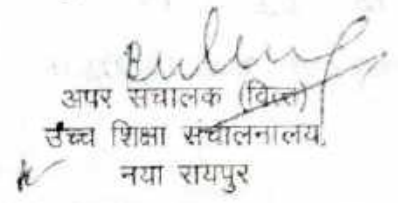 अपर संचालक (वित्त)
उच्च शिक्षा संचालनालय,
नया रायपुर